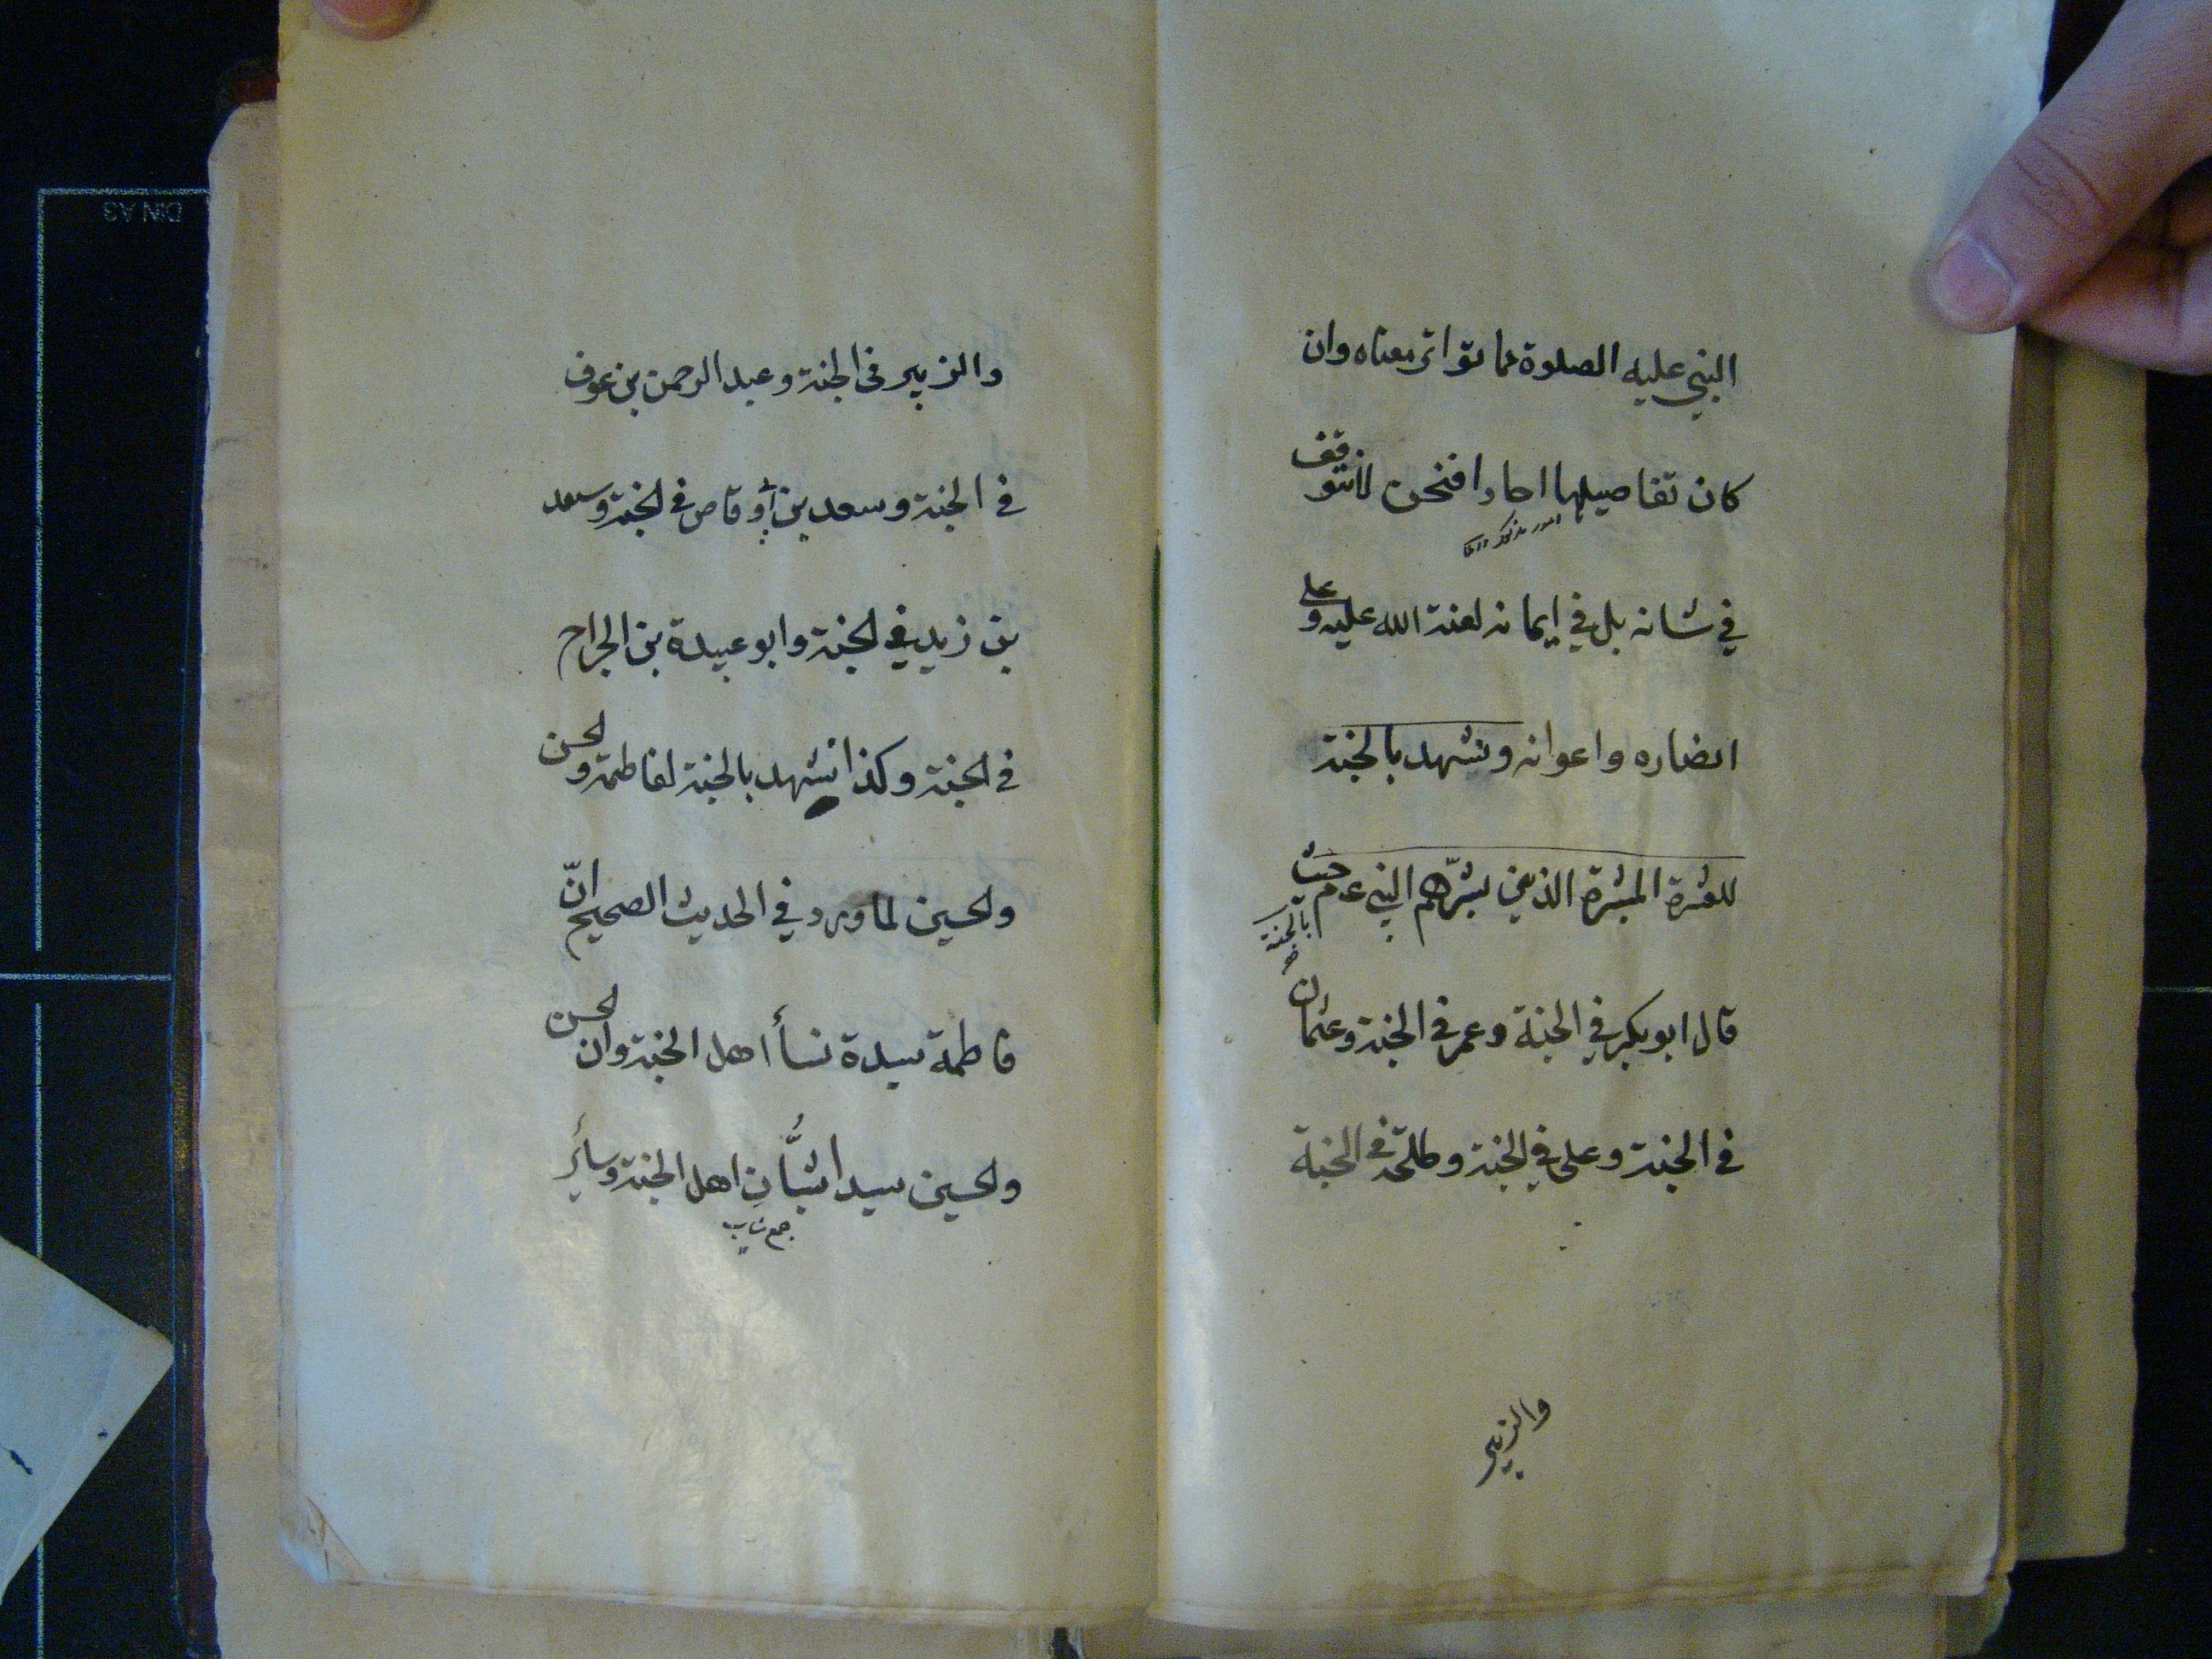 النبي عليه الصلوة مما تواتر معناه وان
كان تفاصيلها احادا فنحن لا نتوقف
في شانه بل في ايمانه لعنة الله عليه وعلى
انصاره واعوانه ونشهد بالجنة
للعشرة المبشرة الذين بشرّهم النبي عم حيث
بالجنة
قال ابو بكر في الجنة وعمر في الجنة وعثمان
في الجنة وعلي في الجنة وطلحة في الجنة
والزبير
والزبير في الجنة وعبد الرحمن بن عوف
في الجنة وسعد بن أبي وقاص في الجنة وسعد
بن زيد في الجنة وابو عبيدة بن الجراح
في الجنة وكذا نشهد بالجنة لفاطمة والحسن
والحسين لما ورد في الحديث الصحيح انّ
فاطمة سيدة نسأ اهل الجنة وان الحسن
والحسين سيدا شُبَّان اهل الجنة وسائر
جمع شاب
DIN A3